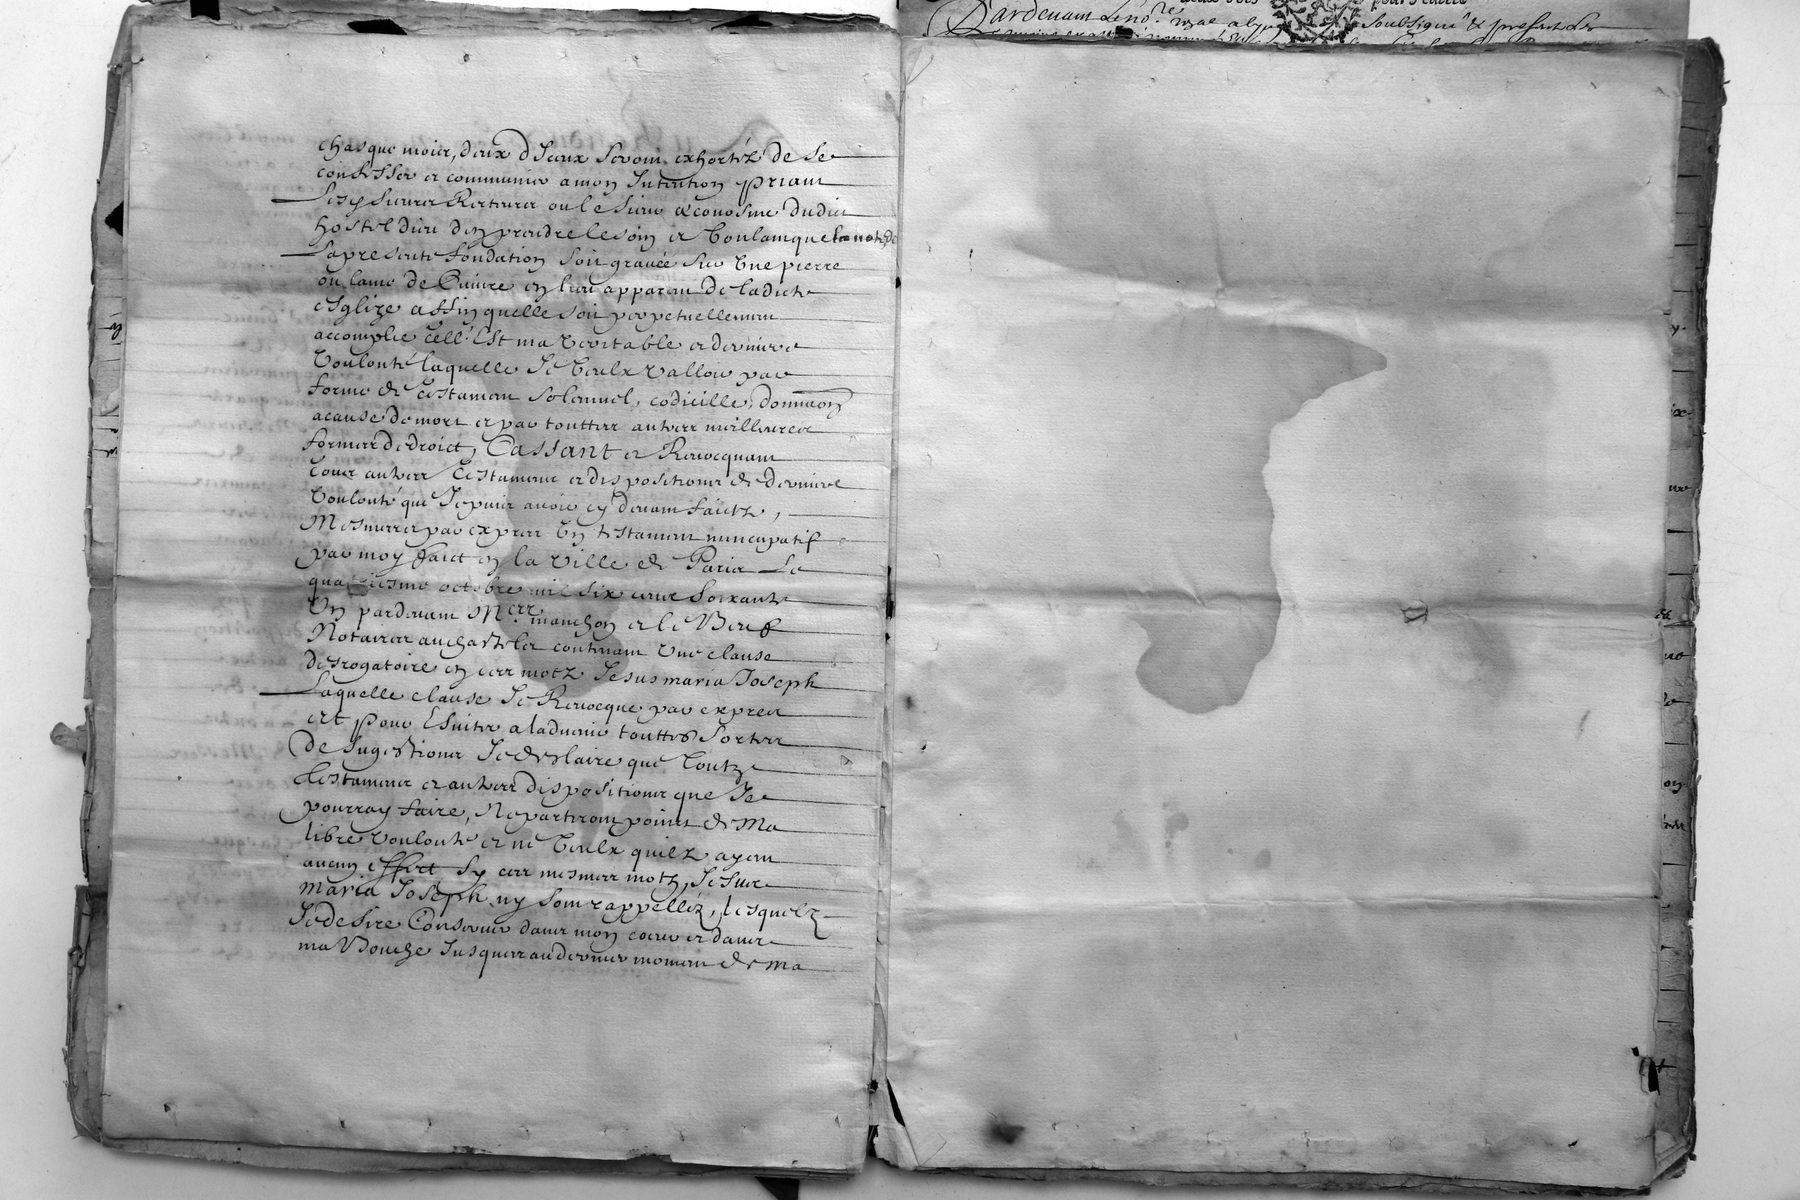 Pardevant le no.re royal soubsigné & present les
chasque mois, deux d'Iceux seront exhortéz de se
confesser et communier a mon Intention priant
Lesd. sieurs Recteurs ou le sieur œconosme dudit
hostel dieu den prendre le soin et voulant que la note de
La presente fondation soit gravée sur une pierre
ou lame de Cuivre en lieu apparant de ladicte
esglize affin quelle soit perpetuellement
accomplie celle Est ma veritable et derniere
Voulonté laquelle Je veulx valloir par
forme de testament solemnel, codicille, donnaõn
a cause de mort et par touttes autres meilleures
formes de droict, Cassant et Revocquant
tous autres testamens et dispositions de derniere
Voulonté que Je puis avoir cy devant faictz,
Mesmes par expres un testament nuncupatif
par moy faict en la ville de Paris Le
octobre mil six cens soixante
Un pardevant M.res manchon et le Beuf
Notaires au chastelet contenant une clause
desrogatoire en ces motz Jesus maria Joseph
Laquelle clause Je Revocque par expres
et pour Esviter a ladvenir touttes sortes
de sugestions Je desclaire que toutz
testamens et autres dispositions que Je
pourray faire, Ne partiront point de Ma
libre voulonté et ne veulx quilz ayent
aucun effect sy ces mesmes motz, Jesus
maria Joseph ny sont rappelléz, lesquelz
Je desire Conserver dans mon cœur et dans
ma Bouche Jusques au dernier moment de ma